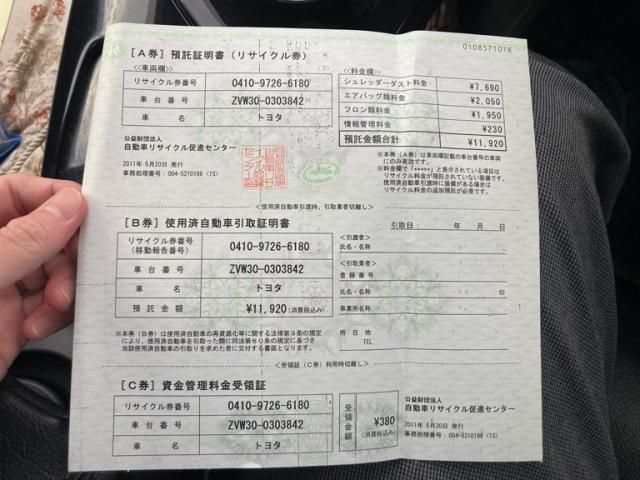 0108571078
[A券] 預託証明書 (リサイクル券)
<車両欄>
リサイクル券番号 0410-9726-6180
車台番号 ZVW30-0303842
車名 トヨタ
公益財団法人
自動車リサイクル促進センター
2011年 5月20日 発行
事務処理番号：004-5210198 (1S)
<料金欄>
シュレッダーダスト料金 ¥7,690
エアバッグ類料金 ¥2,050
フロン類料金 ¥1,950
情報管理料金 ¥230
預託金額合計 ¥11,920
※本券(A券)は車両欄記載の車台番号の車両
にのみ有効です。
※料金欄で「*****」と表示されている項目は
リサイクル料金が預託されていない装備です。
使用済自動車引渡時に装備がある場合は
リサイクル料金の追加預託が必要です。
<使用済自動車引渡時、引取業者切離し>
[B券] 使用済自動車引取証明書
リサイクル券番号
(移動報告番号) 0410-9726-6180
車台番号 ZVW30-0303842
車名 トヨタ
預託金額 ¥11,920 (消費税込み)
※本券(B券)は使用済自動車の再資源化等に関する法律第9条の規定
により、使用済自動車を引取った際に同法第80条の規定に基づき
当該使用済自動車の引取りを求めた者に交付する書面となります。
引取日： 年 月 日
<引渡者>
氏名・名称
<引取業者>
登録番号
氏名・名称 印
事業所名称
所在地
TEL.
<受領証(C券)利用時切離し>
[C券] 資金管理料金受領証
リサイクル券番号 0410-9726-6180
車台番号 ZVW30-0303842
車名 トヨタ
受領金額 ¥380
(消費税込み)
公益財団法人
自動車リサイクル促進センター
2011年 5月20日 発行
事務処理番号：004-5210198 (1S)